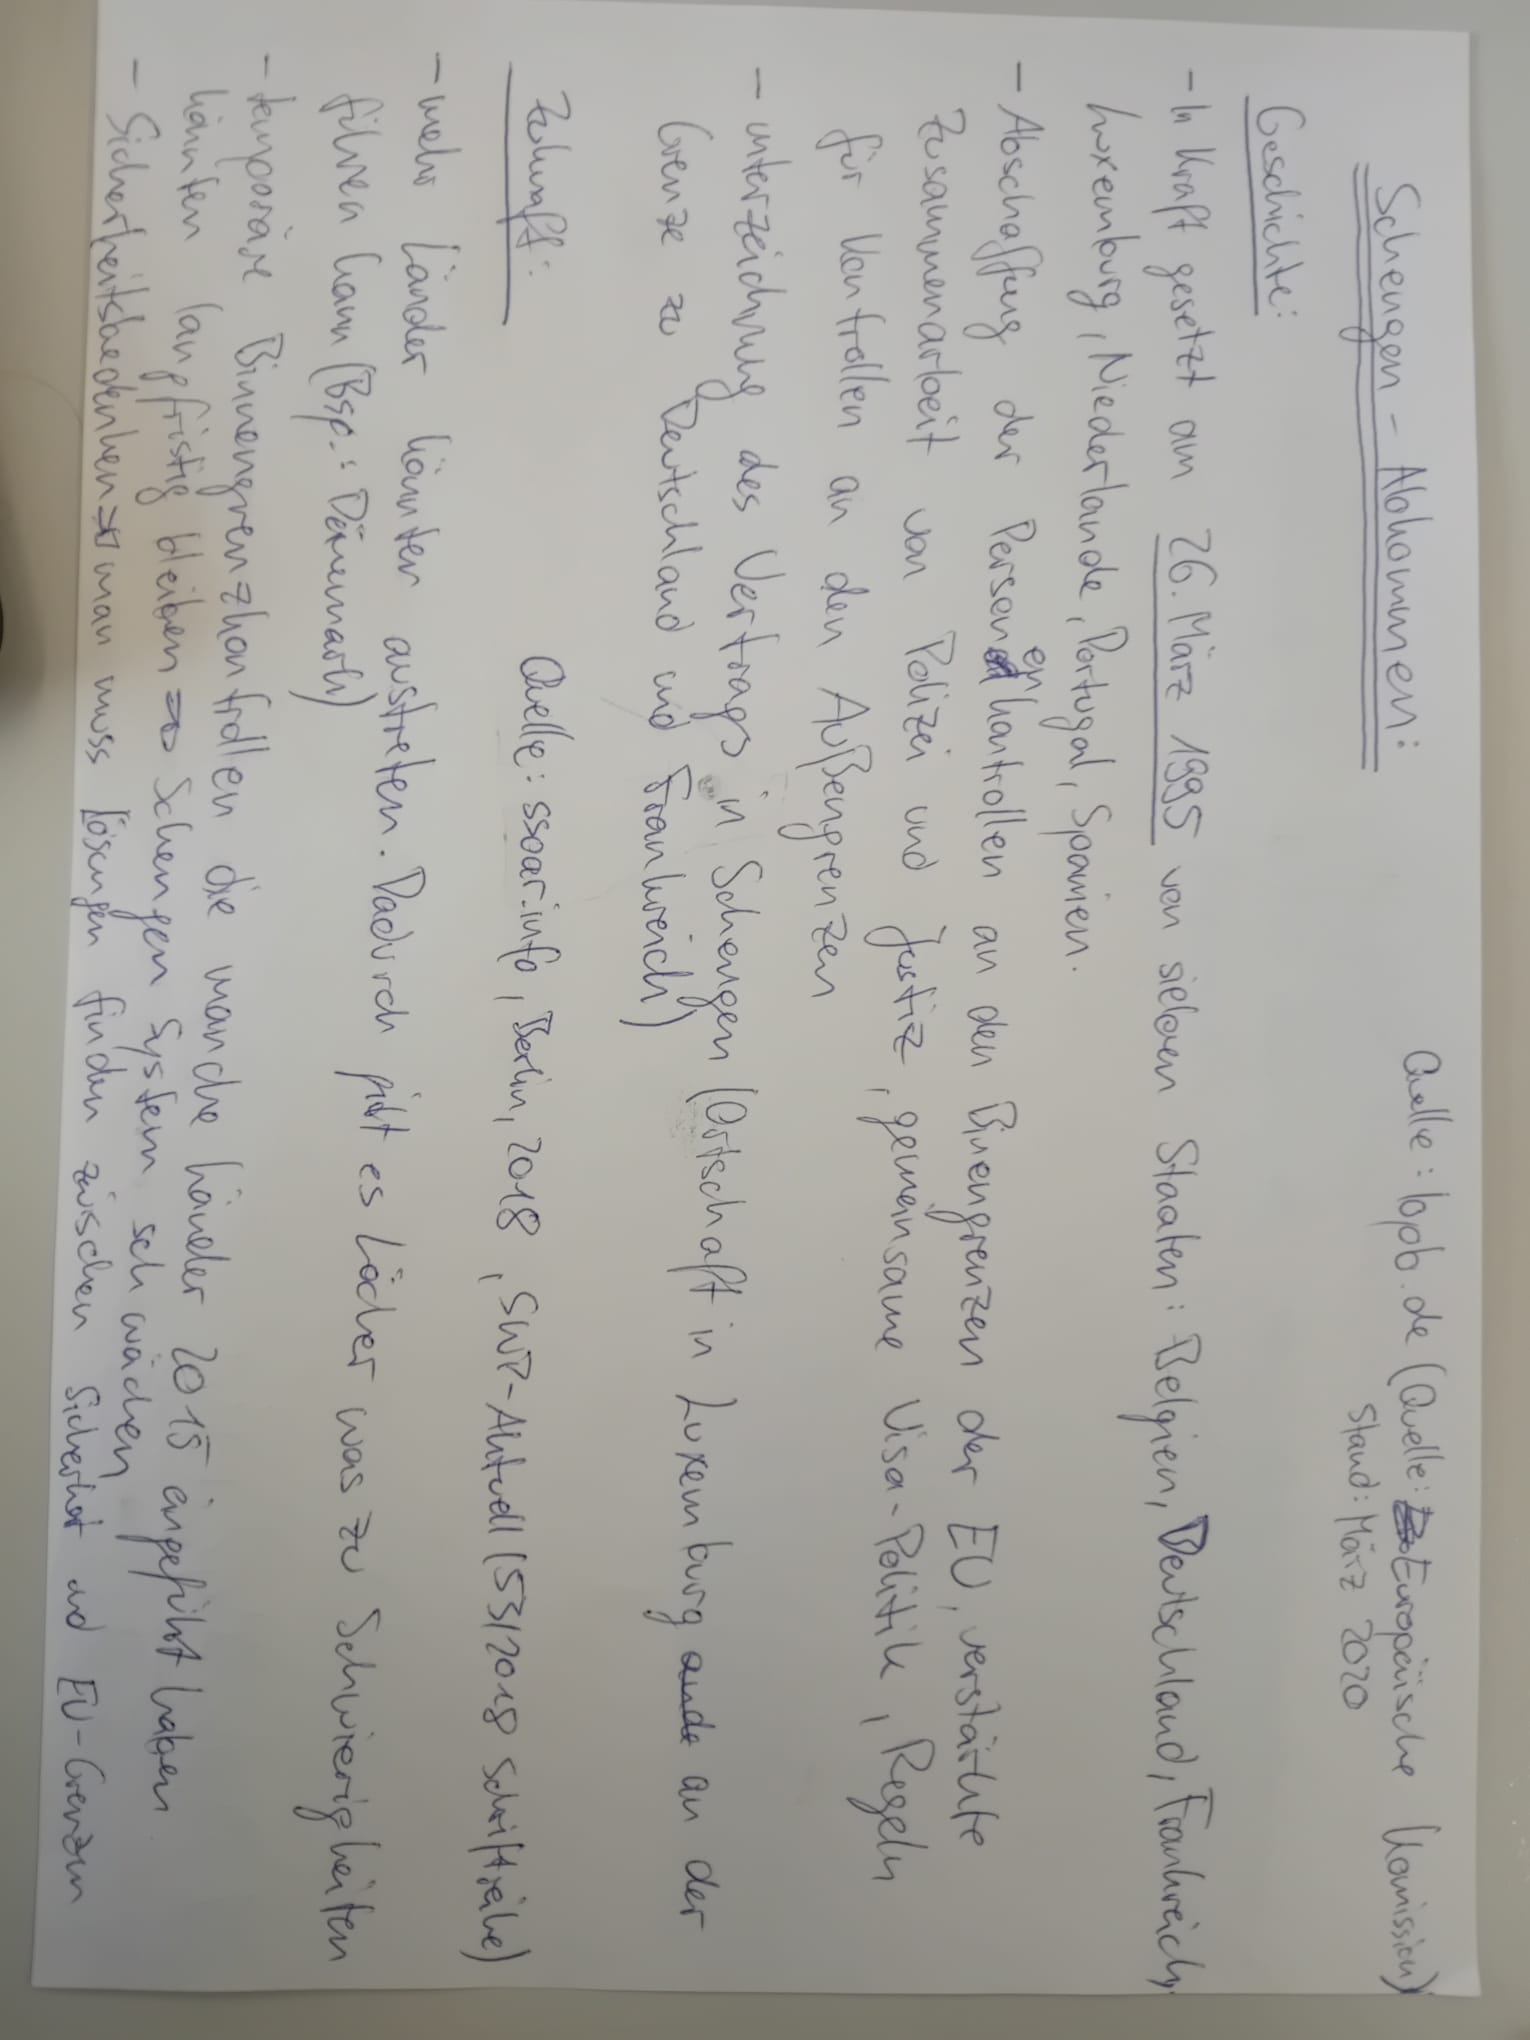 Schengen - Abkommen:
Quelle: lopb.de (Quelle: Europäische Komission)
Stand: März 2020
Geschichte:
- In Kraft gesetzt am 26. März 1995 von sieben Staaten: Belgien, Deutschland, Frankreich,
Luxemburg, Niederlande, Portugal, Spanien.
- Abschaffung der Personenkontrollen an den Binengrenzen der EU, verstärkte
Zusammenarbeit von Polizei und Justiz, gemeinsame Visa-Politik, Regeln
für Kontrollen an den Außengrenzen
- unterzeichnung des Vertrags in Schengen (Ortschaft in Luxemburg an der
Grenze zu Deutschland und Frankreich)
Zukunft:
Quelle: ssoar.info, Berlin, 2018, SWP-Aktuell (53/2018 schriftreihe)
- mehr Länder könnten austreten. Dadurch gibt es Löcher was zu Schwierigkeiten
führen kann (Bsp.: Dänemark)
- temporäre Binnengrenzkontrollen die manche Länder 2015 eingeführt haben
könnten langfristig bleiben => Schengen System schwächen
- Sicherheitsbedenken => man muss Lösungen finden zwischen Sicherheit und EU-Grenzen